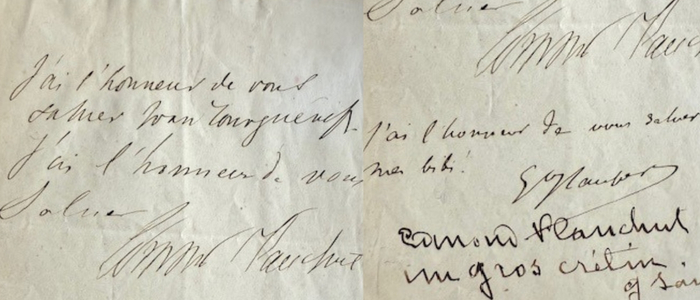 J'ai l'honneur de vous
saluer Ivan Tourguéneff.
J'ai l'honneur de vous
Saluer
Edmond Plauchut
Saluer
Edmond Plauc
J'ai l'honneur de vous saluer
mes bibi!
G Flaubert
Edmond Plauchut
un gros crétin.
g Sa